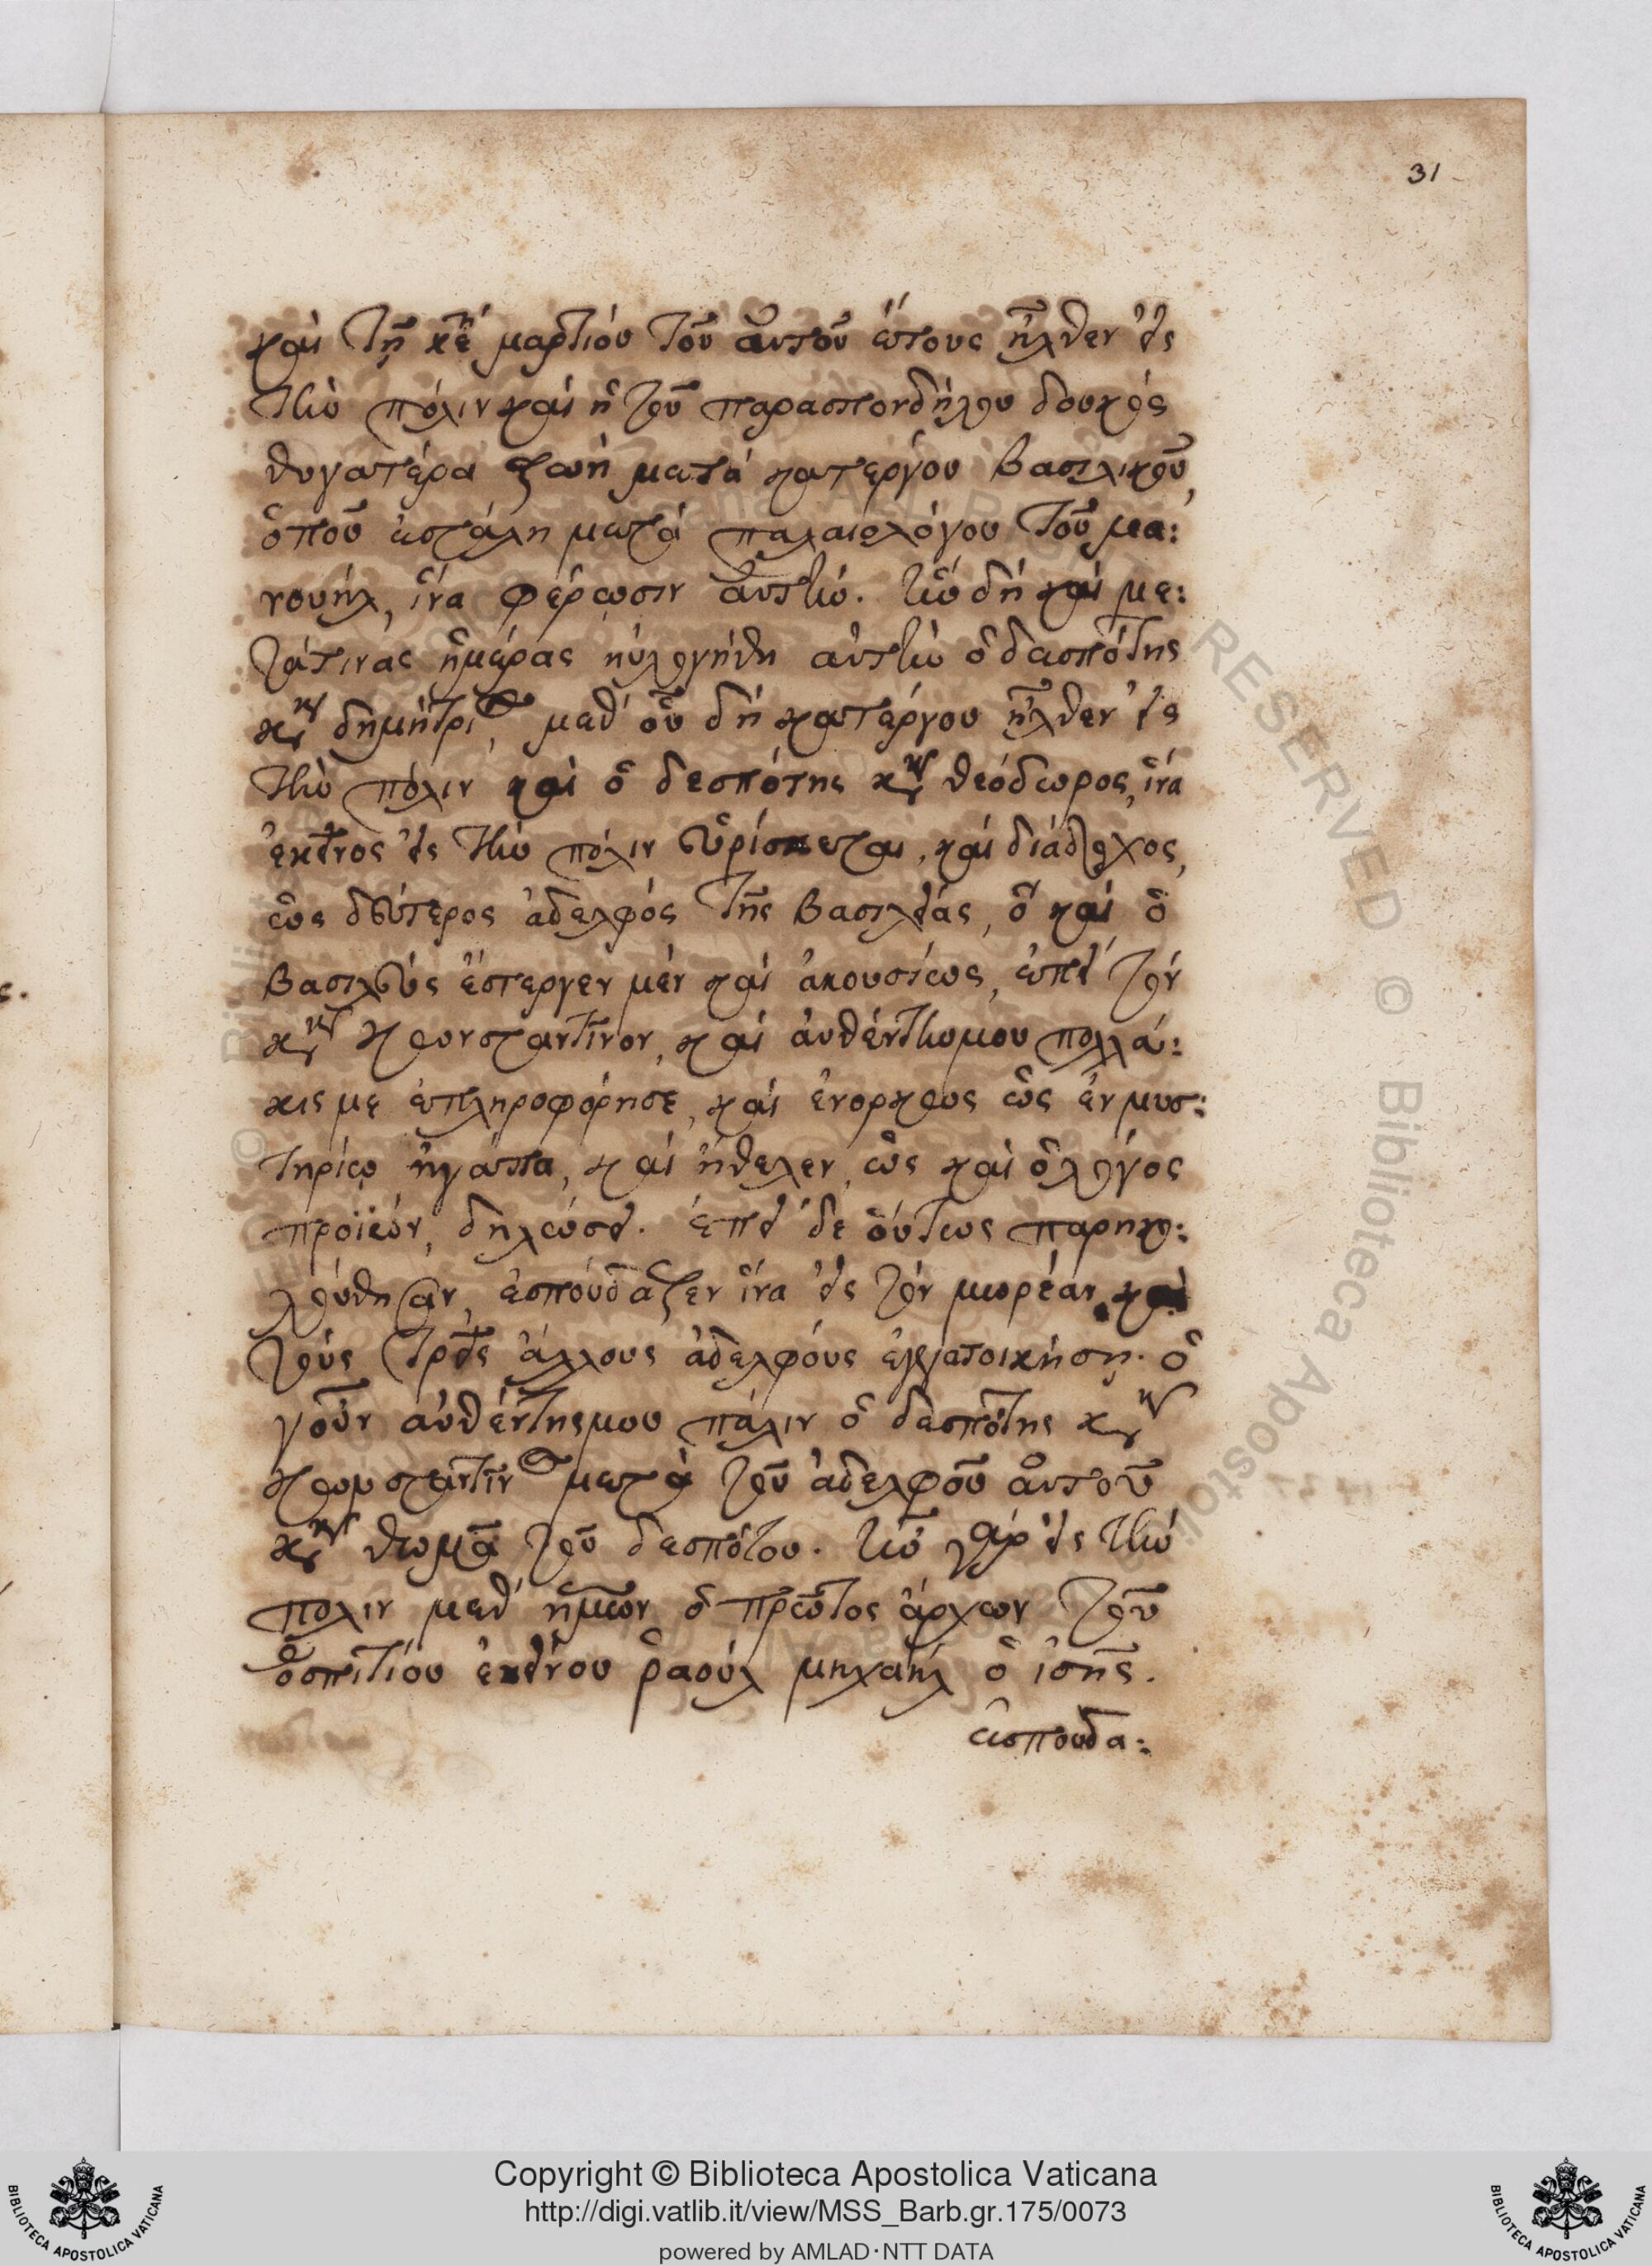 31
καὶ τῆ κ̅ε̅ῃ μαρτίου τοῦ αὐτοῦ ἔτους ἦλθεν εἰς
τὴν πόλιν καὶ ἡ τοῦ παρασπονδήλου δουκὸς
θυγατέρα ζωὴ μετὰ κατεργου βασιλικοῦ,
ὁποῦ ἐστάλη μετὰ παλαιολόγου τοῦ μα:
νουήλ, ἵνα φέρωσιν αὐτὴν. ἣν δὴ καὶ με:
τά τινας ἡμέρας ηὐλογήθη αὐτὴν ὁ δεσπότης
κὺρ δημήτριος, μεθ' οὗ δὴ κατέργου ἦλθεν εἰς
τὴν πόλιν καὶ ὁ δεσπότης κὺρ θεόδωρος, ἵνα
ἐκεῖνος εἰς τὴν πόλιν εὑρίσκεται, καὶ διάδοχος,
ὡς δεύτερος ἀδελφὸς τῆς βασιλείας, ὃ καὶ ὁ
βασιλεὺς ἔστεργεν μὲν καὶ ἀκουσίως, ἐπεὶ τὸν
κὺρ κωνσταντῖνον, καὶ αὐθέντην μου πολλά:
κις με ἐπληροφόρησε, καὶ ἐνορκως ὡς ἐν μυσ:
τηρίῳ ἠγάπα, καὶ ἤθελεν, ὡς καὶ ὁ λόγος
προϊὼν, δηλώσει. ἐπεὶ δε οὕτως παρηκο:
λούθησαν, ἐσπούδαζεν ἵνα εἰς τὸν μωρέαν καὶ
τοὺς τρεῖς ἄλλους ἀδελφοὺς ἐγκατοικήσῃ. ὁ
γοῦν αὐθέντης μου πάλιν ὁ δεσπότης κὺρ
κωνσταντῖνος μετὰ τοῦ ἀδελφοῦ αὐτοῦ
κὺρ θωμᾶ τοῦ δεσπότου. ἦν γὰρ εἰς τὴν
πόλιν μεθ' ἡμῶν ὁ πρῶτος ἄρχων τοῦ
ὁσπιτίου ἐκείνου ῥαοὺλ μηχαὴλ ὁ ἰσῆς.
ἐσπουδα:
Copyright © Biblioteca Apostolica Vaticana
http://digi.vatlib.it/view/MSS_Barb.gr.175/0073
powered by AMLAD·NTT DATA